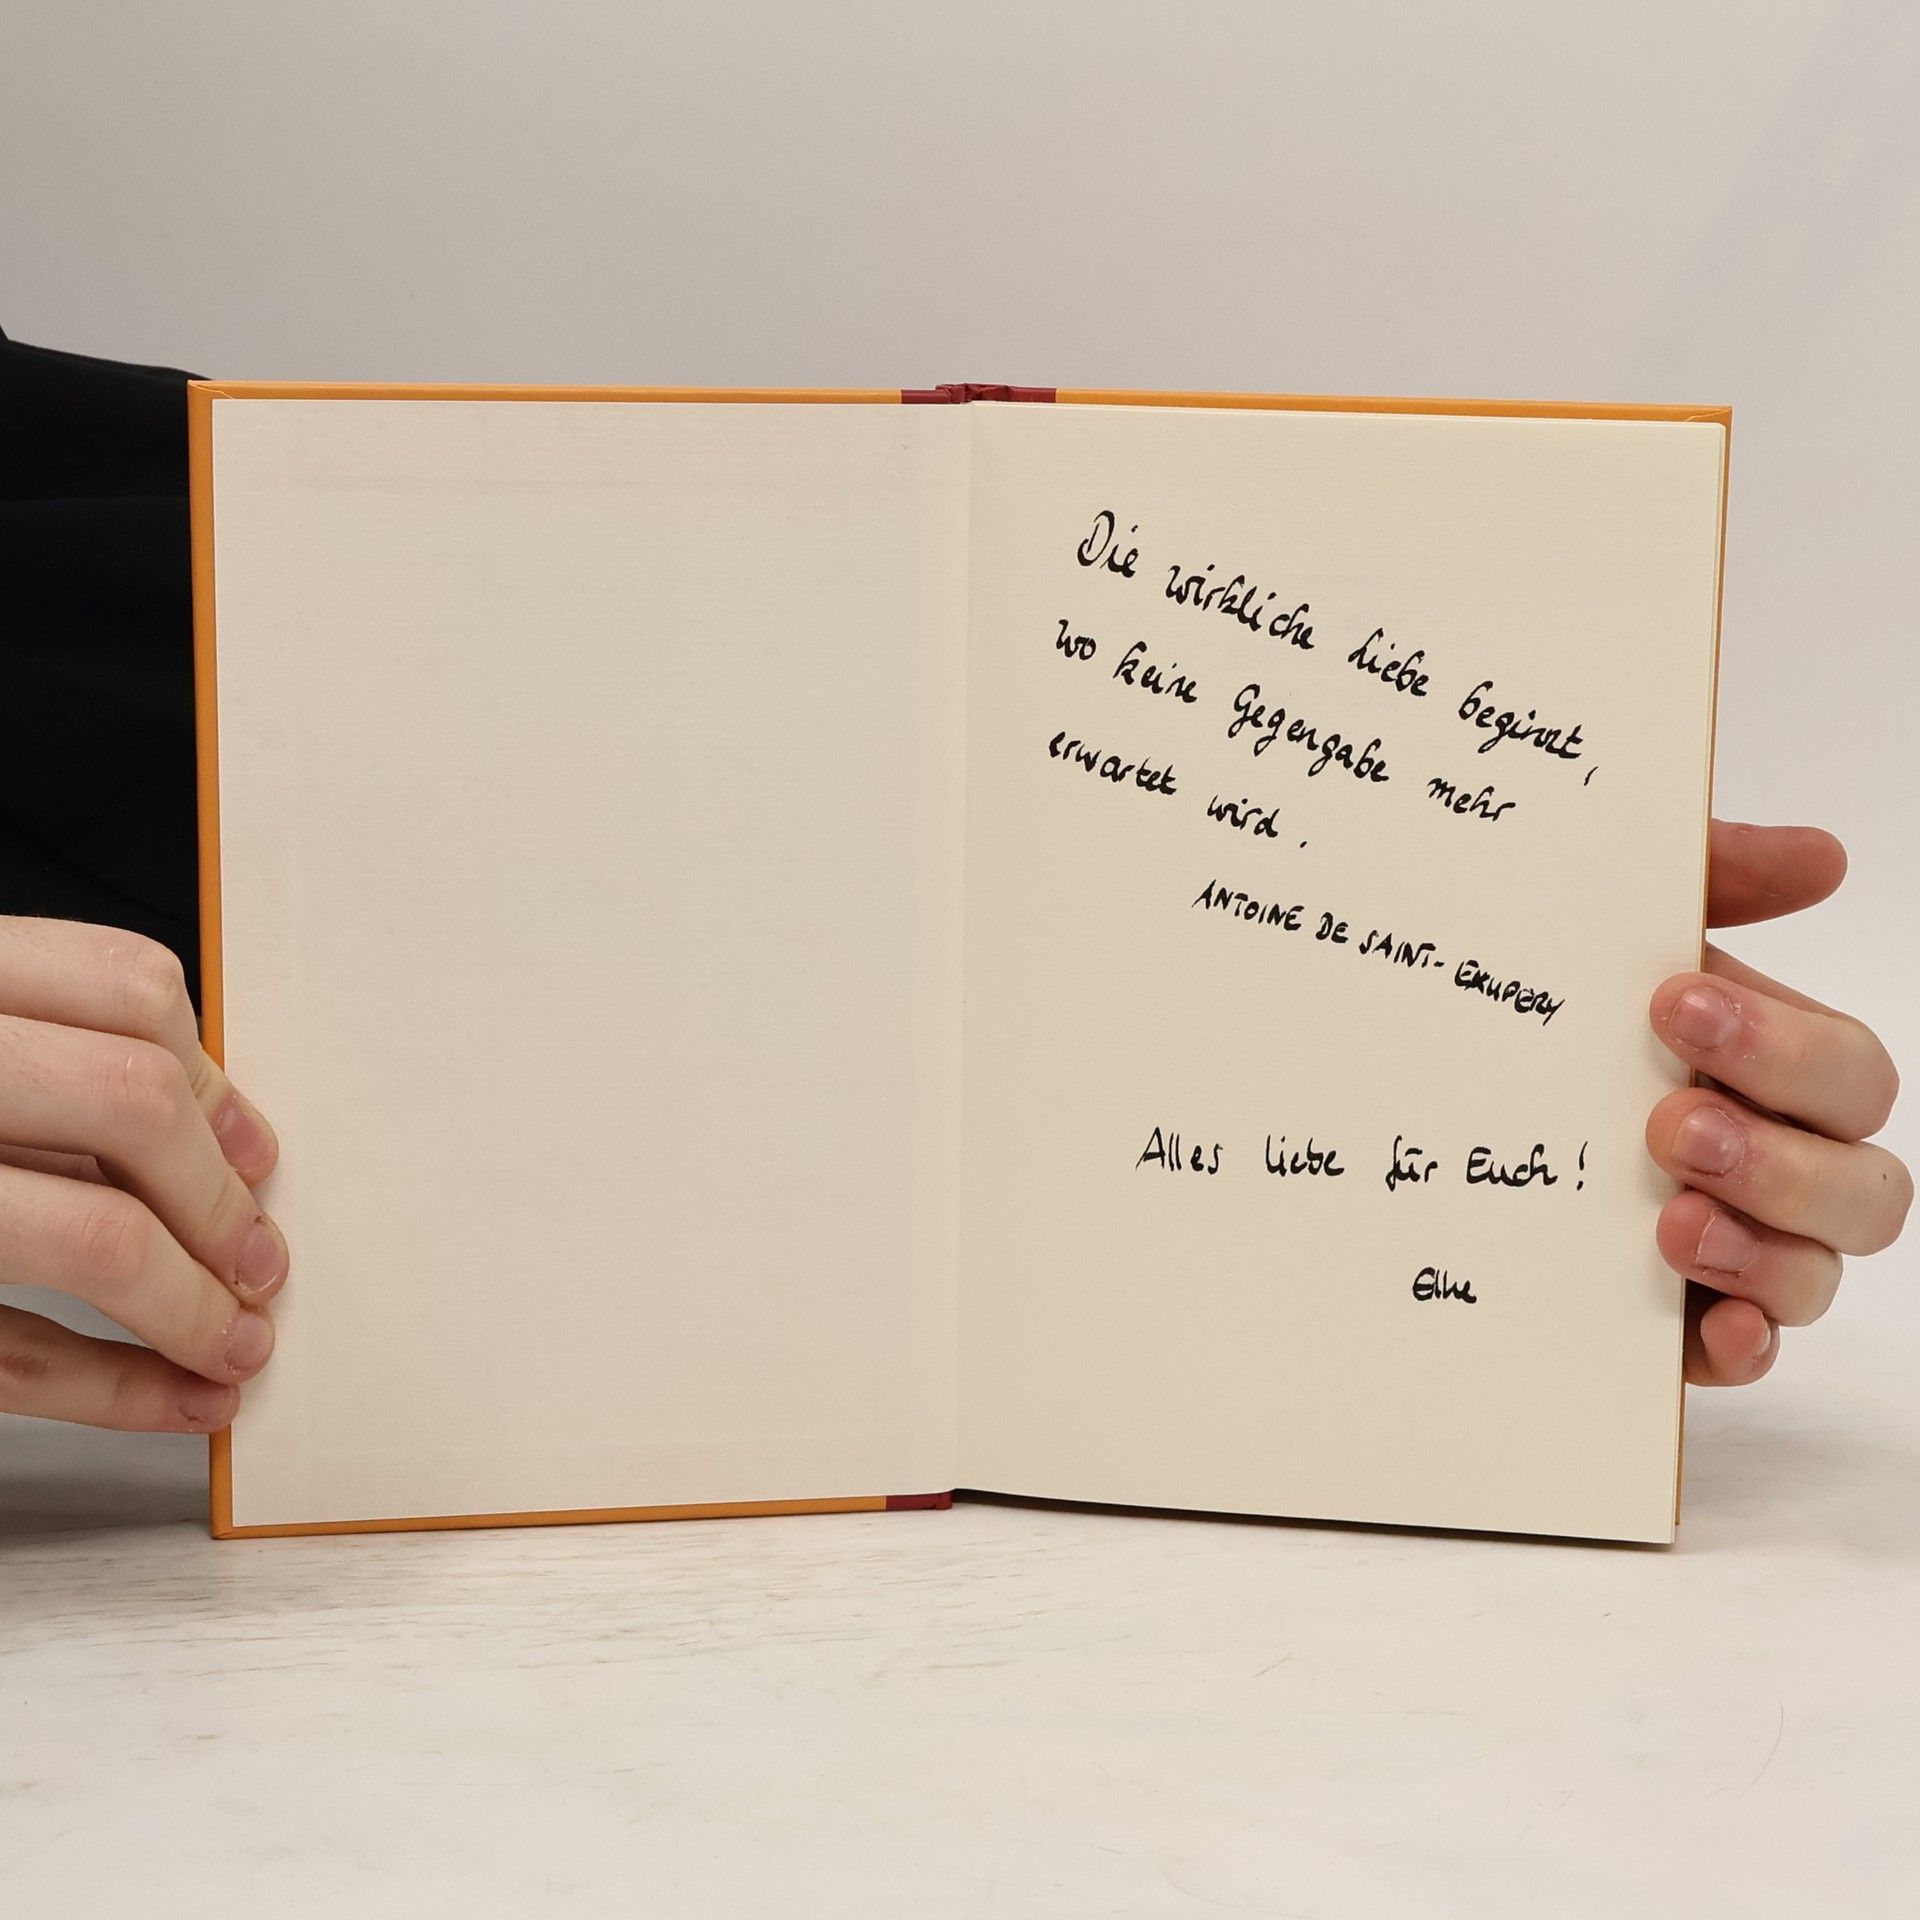 Die wirkliche Liebe beginnt,
wo keine Gegengabe mehr
erwartet wird.
ANTOINE DE SAINT-EXUPERY
Alles liebe für Euch!
Elke